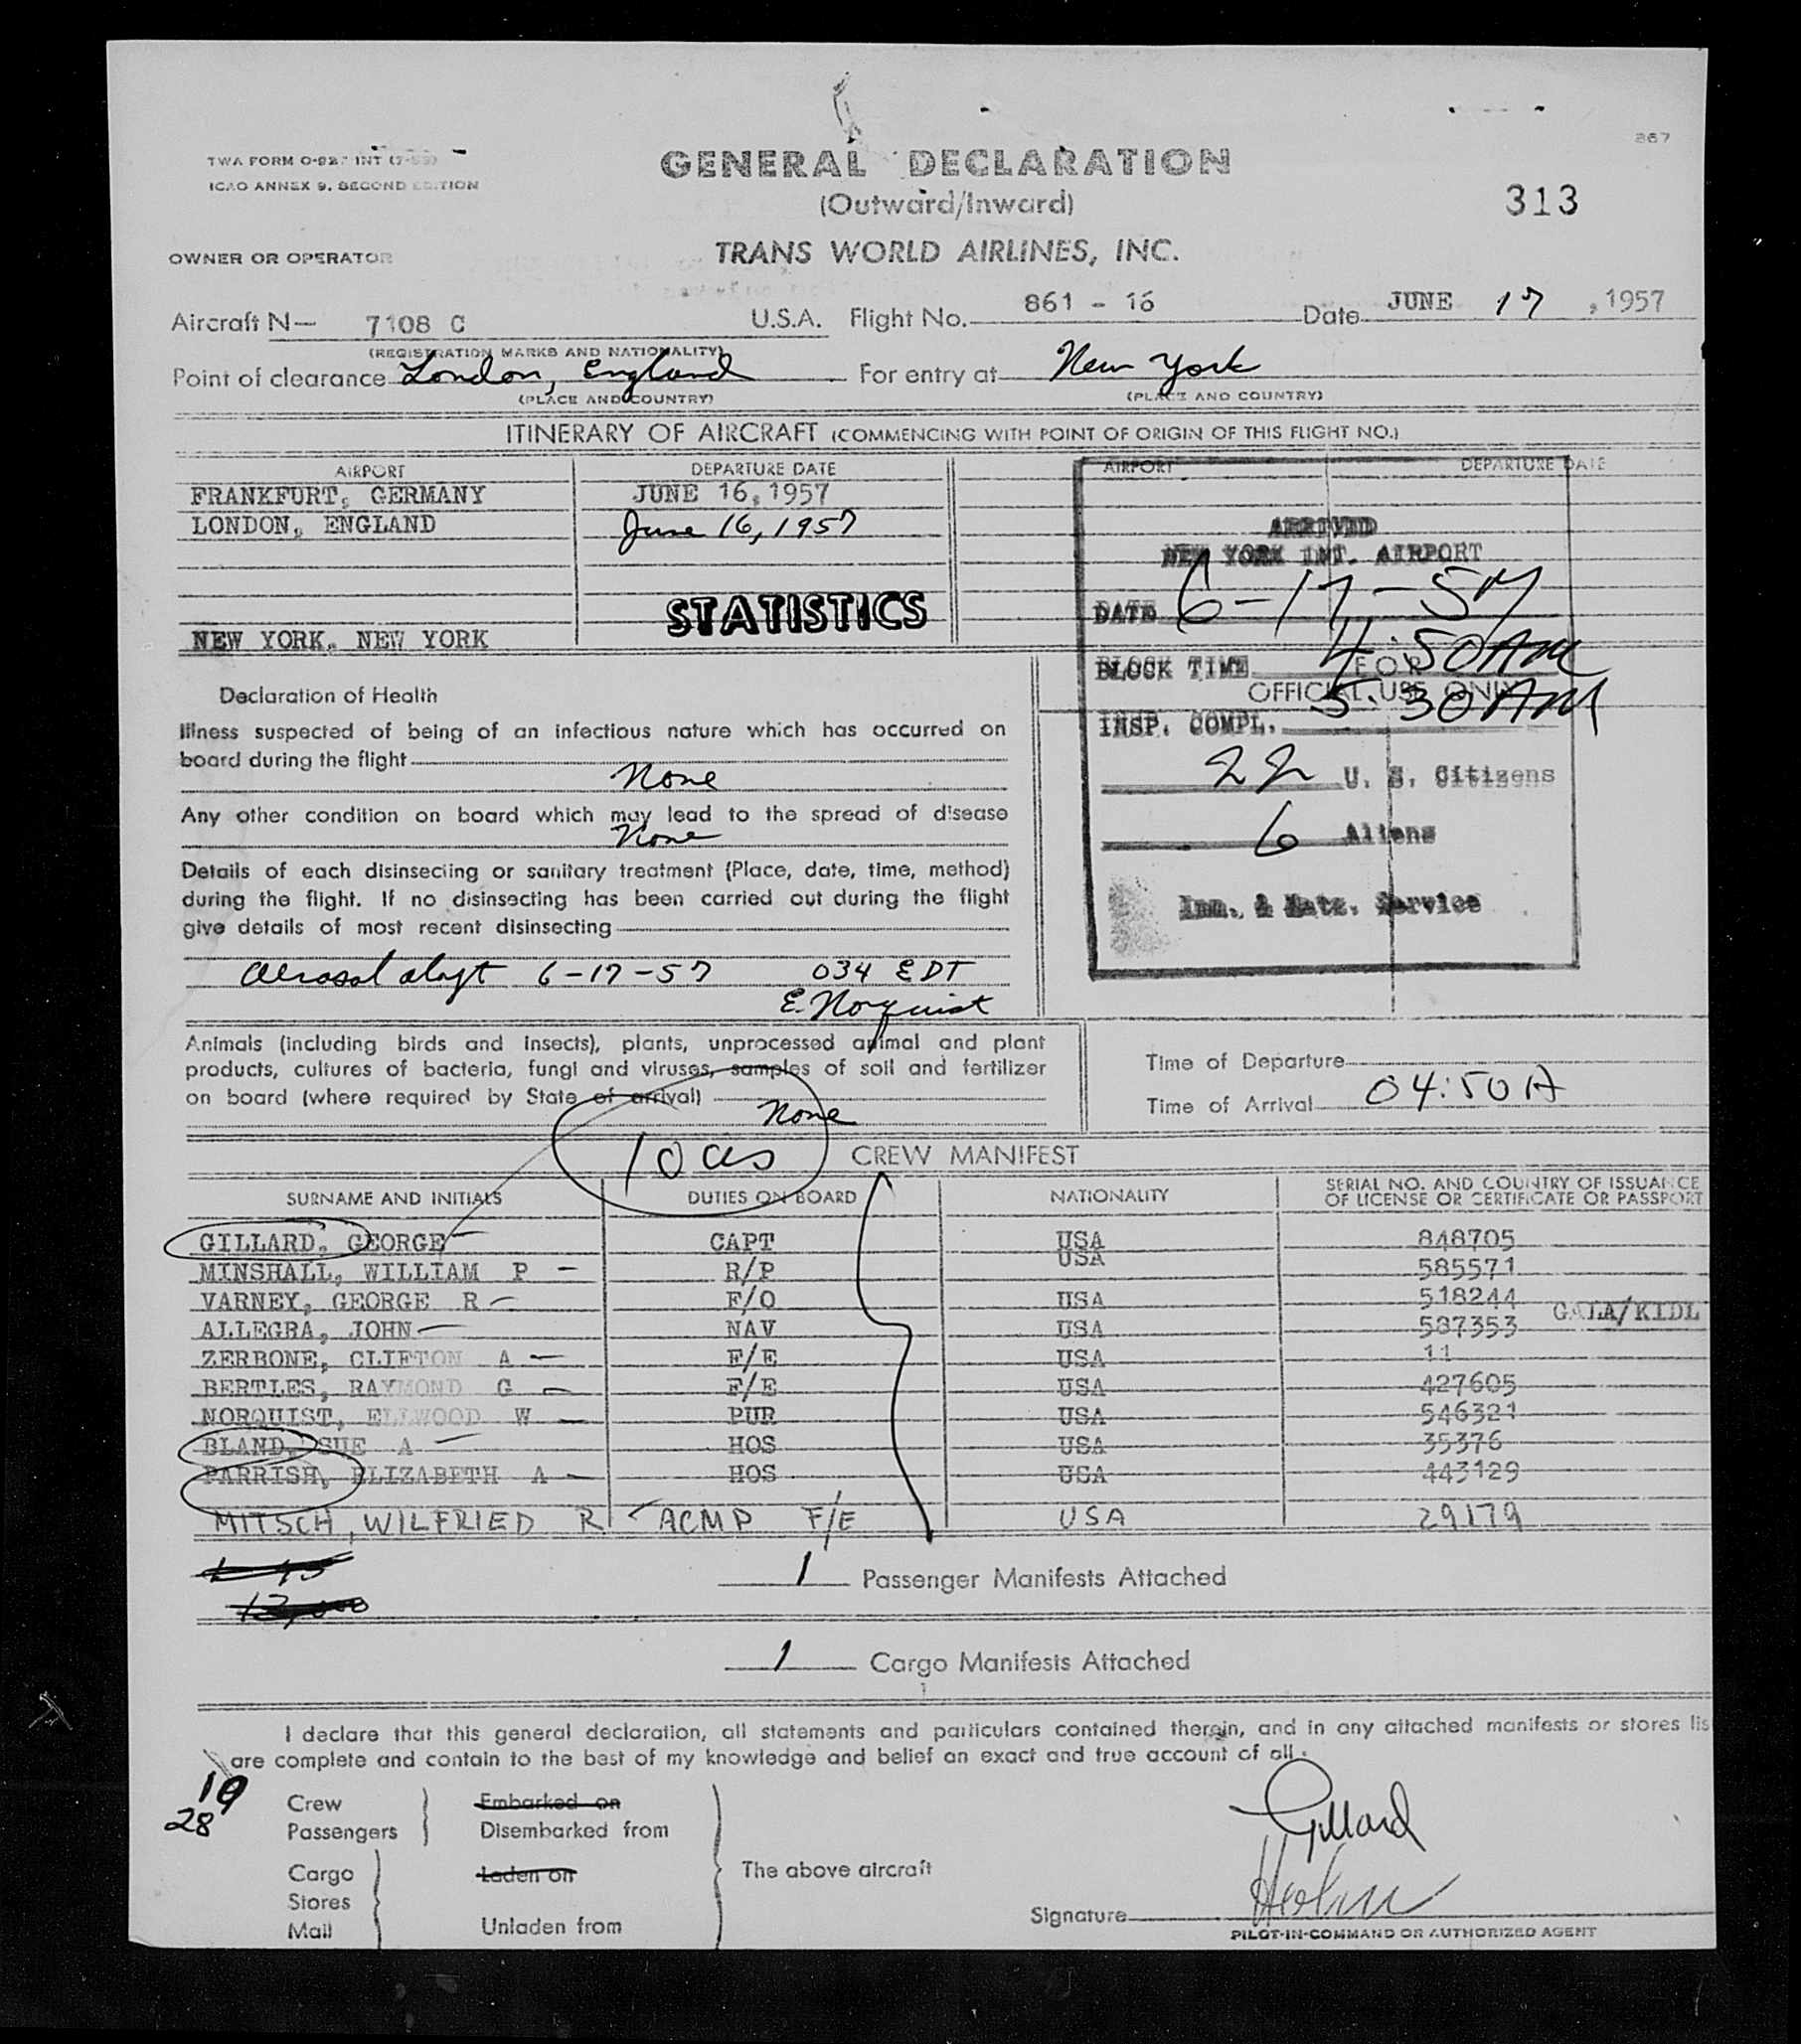 867
TWA FORM O-927 INT (7-55)
ICAO ANNEX 9, SECOND EDITION
GENERAL DECLARATION
(Outward/Inward)
313
OWNER OR OPERATOR
TRANS WORLD AIRLINES, INC.
Aircraft N— 7108 C U.S.A. Flight No. 861 - 16 Date JUNE 17, 1957
(REGISTRATION MARKS AND NATIONALITY)
Point of clearance London, England For entry at New York
(PLACE AND COUNTRY) (PLACE AND COUNTRY)
ITINERARY OF AIRCRAFT (COMMENCING WITH POINT OF ORIGIN OF THIS FLIGHT NO.)
AIRPORT DEPARTURE DATE AIRPORT DEPARTURE DATE
FRANKFURT, GERMANY JUNE 16, 1957
LONDON, ENGLAND June 16, 1957
STATISTICS
NEW YORK, NEW YORK
ARRIVED
NEW YORK INT. AIRPORT
DATE 6-17-57
BLOCK TIME 4:50 AM
FOR
OFFICIAL USE ONLY
INSP. COMPL. 5:30 AM
22 U. S. Citizens
6 Aliens
Imm. & Natz. Service
Declaration of Health
Illness suspected of being of an infectious nature which has occurred on
board during the flight
None
Any other condition on board which may lead to the spread of disease
None
Details of each disinsecting or sanitary treatment (Place, date, time, method)
during the flight. If no disinsecting has been carried out during the flight
give details of most recent disinsecting
Aerosol 6-17-57 034 EDT
E. Norquist
Animals (including birds and insects), plants, unprocessed animal and plant
products, cultures of bacteria, fungi and viruses, samples of soil and fertilizer
on board (where required by State of arrival)
None
Time of Departure
Time of Arrival 04:50 A
10 
CREW MANIFEST
SURNAME AND INITIALS DUTIES ON BOARD NATIONALITY SERIAL NO. AND COUNTRY OF ISSUANCE
OF LICENSE OR CERTIFICATE OR PASSPORT
GILLARD, GEORGE CAPT USA 848705
MINSHALL, WILLIAM P R/P USA 585571
VARNEY, GEORGE R F/O USA 518244
ALLEGRA, JOHN NAV USA 587353 GALA/KIDL
ZERBONE, CLIFTON A F/E USA 11
BERTLES, RAYMOND G F/E USA 427605
NORQUIST, ELLWOOD W PUR USA 546321
BLAND, SUE A HOS USA 35376
PARRISH, ELIZABETH A HOS USA 443129
MITSCH, WILFRIED R ACMP F/E USA 29179
1 Passenger Manifests Attached
1 Cargo Manifests Attached
I declare that this general declaration, all statements and particulars contained therein, and in any attached manifests or stores lis
are complete and contain to the best of my knowledge and belief an exact and true account of all.
10 Crew Embarked on
28 Passengers Disembarked from
Cargo Laden on
Stores
Mail Unladen from
The above aircraft
Gillard
Signature
PILOT-IN-COMMAND OR AUTHORIZED AGENT